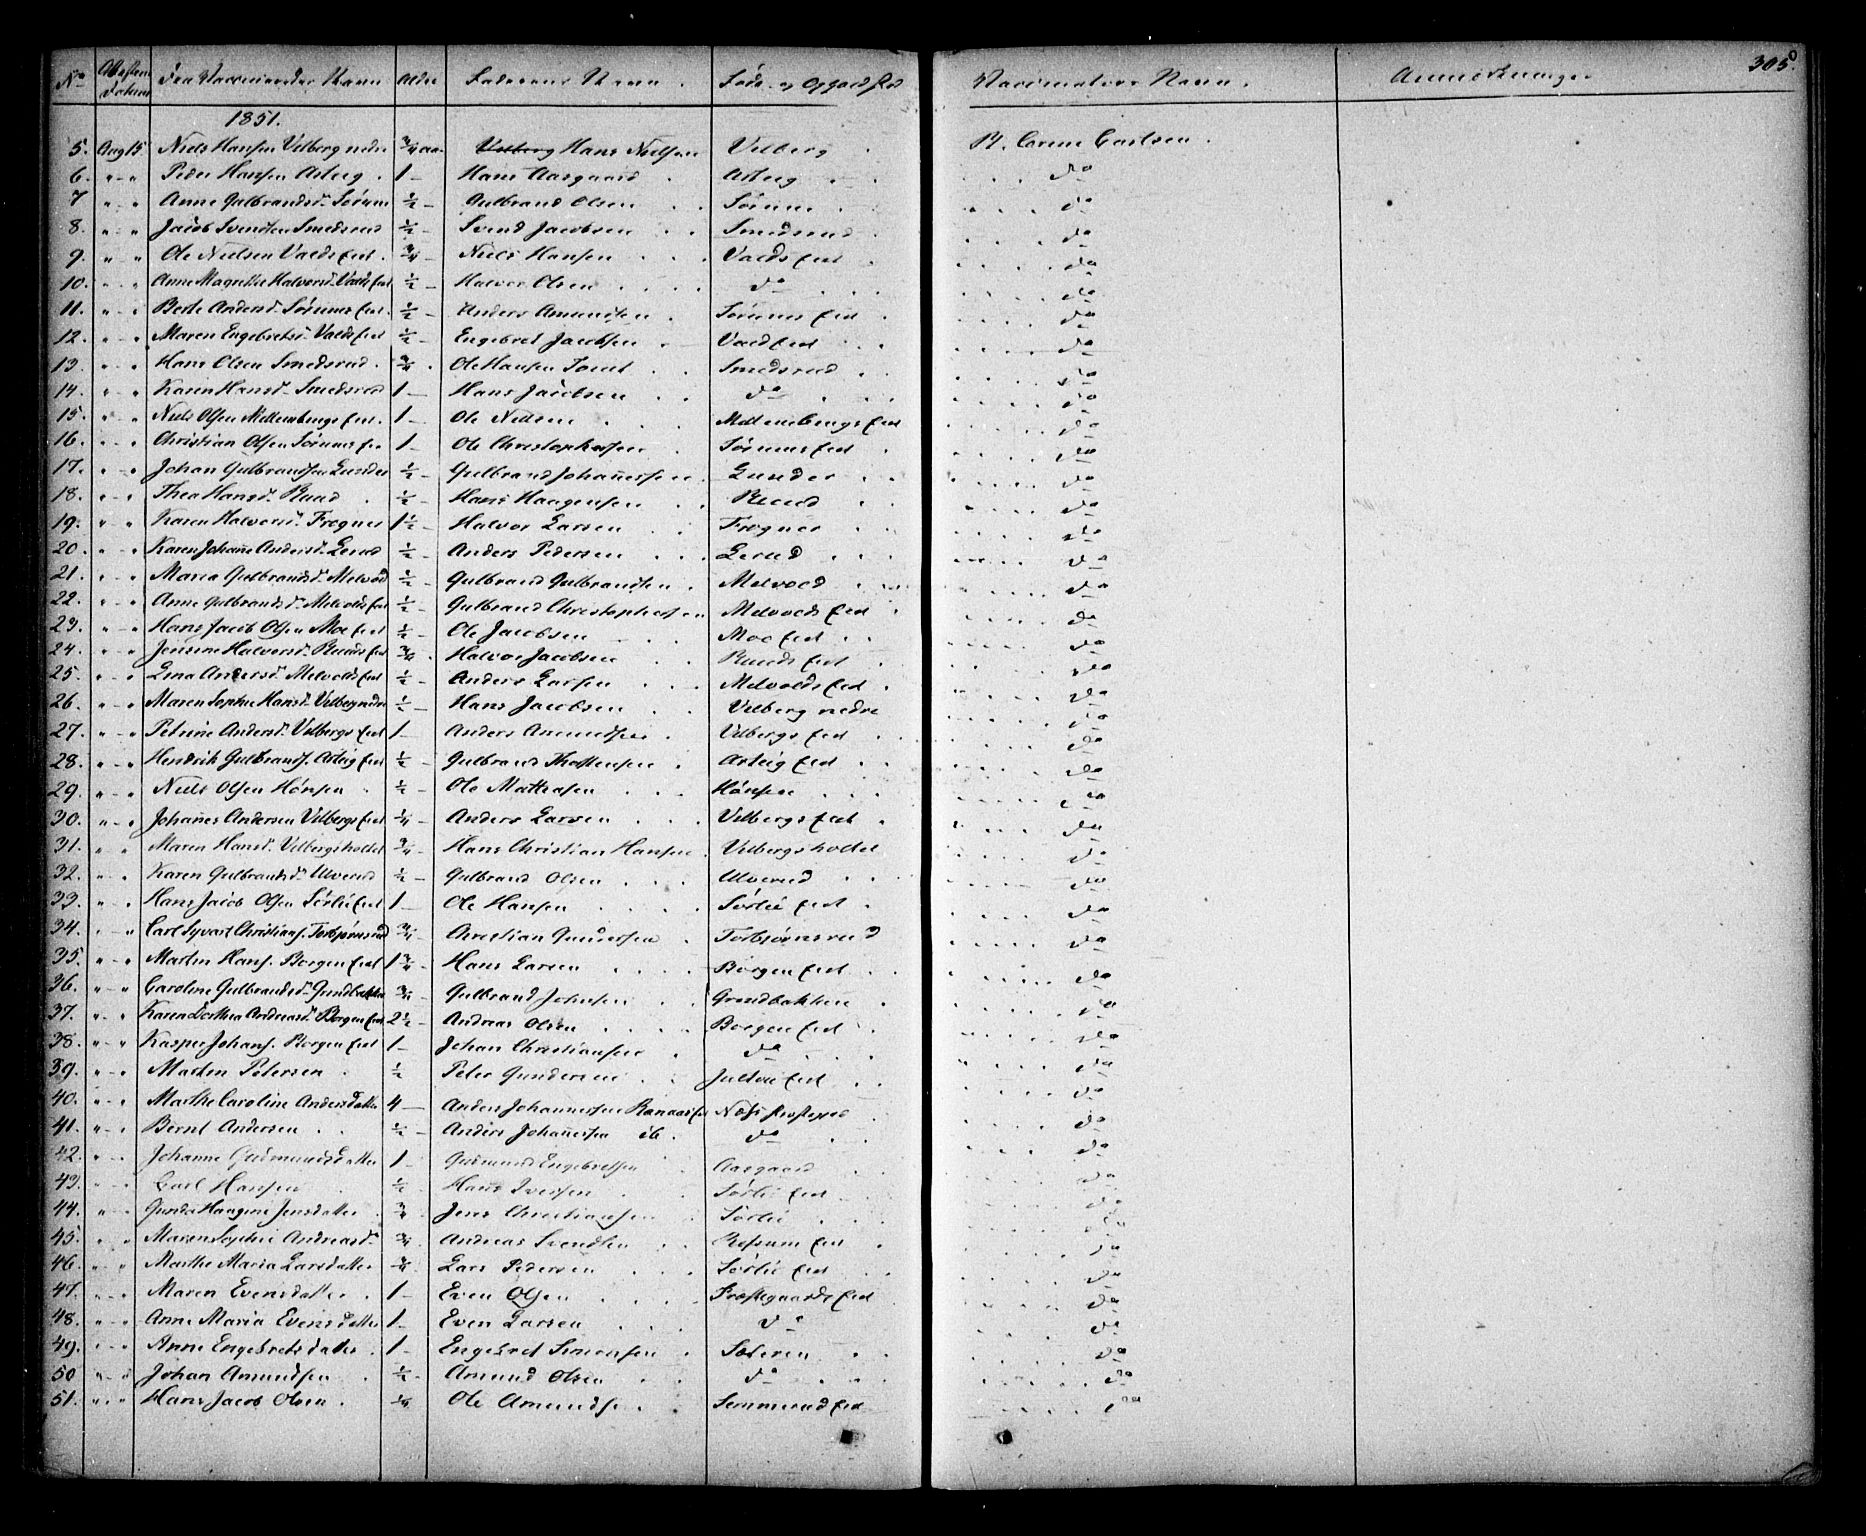 305.
No Attestens Datum De Vaccineredes Navn Alder Faderens Navn Føde- og Opholdssted Vaccinateurs Navn. Anmærkninger
1851.
5. Aug 15 Niels Hansen Vilberg nedre 3/4 aar Hans Nielsen Vilberg M. Corene Carlsen.
6. " - " Peder Hansen Asteig. 1 - Hans Aasgaard Do
7 " - " Anne Gulbrandsd. Sørum 1/2 - Gulbrand Olsen Sørum Do
8. " - " Jacob Svendsen Smedsrud 1/2 - Svend Jacobsen Smedsrud Do
9. " " Ole Nielsen Valds Eiet. 3/4 - Niels Hansen Valds Eiet Do
10. " - " Anne Magrethe Halvorsd. Valds Eiet 1/2 - Halvor Olsen Do Do
11. " - " Berte Andersd. Sørums Eiet. 1/2 - Anders Amundsen Sørums Eiet Do
12. " - " Maren Engebretsd. Valds Eiet 1/2 - Engebret Jacobsen Vald Eiet Do
13. " - " Hans Olsen Smedsrud 3/4 Ole Hansen Smedsrud Do
14. " - " Karen Hansd. Smedsrud 1 - Hans Jacobsen Do Do
15. " - " Niels Olsen Eiet. 1 - Ole Nilsen Do
16. " - " Christian Olsen Sørums Eie 1 - Ole Christophersen Sørums Eiet Do
17. " - " Johan Gulbrandsen Lunder 1/2 - Gulbrand Johannessen Lunder Do
18. " - " Thea Hansd. Ruud 1/2 - Hans Haagensen Ruud Do
19. " - " Karen Halvorsd. Frogner 1 1/2 - Halvor Larsen Frogner Do
20. " - " Karen Johanne Andersd. Lerud 1/2 - Anders Pedersen Lerud Do
21. " - " Maria Gulbrandsd. Melvold 1/2 - Gulbrand Gulbrandsen Melvold Do
22. " - " Anne Gulbrandsd. Melvolds Eiet 1/2 - Gulbrand Christophersen Melvolds Eiet Do
23. " - " Hans Jacob Olsen Moe Eiet 1/2 - Ole Jacobsen Moe Eiet Do
24. " - " Jensine Halvorsd. Ruuds Eiet 3/4 Halvor Jacobsen Ruuds Eiet Do
25. " - " Lina Andersd. Melvolds Eiet 1/2 - Anders Larsen Melvolds Eiet Do
26. " - " Maren Sophie Hansd. Vilberg nedre 1/2 - Hans Jacobsen Vilberg nedre Do
27. " - " Petrine Andersd. Vilbergs Eiet 1 - Anders Amundsen Vilbergs Eiet Do
28. " - " Hendrik Gulbrands. Asteig Eiet 1/2 - Gulbrand Thostensen Asteig Eiet Do
29. " - " Niels Olsen Hønsen 1/2 - Ole Mathiasen Hønsen Do
30. " - " Johannes Andersen Vilbergs Eiet 1/4 - Anders Larsen Vilbergs Eiet Do
31. " " Maren Hansd. Vilbergsholtet 3/4 - Hans Christian Hansen Vilbergsholtet Do
32. " - " Karen Gulbrandsd. Ulverud 1/2 - Gulbrand Olsen Ulverud Do
33. " - " Hans Jacob Olsen Sørlie Eiet 1 - Ole Hansen Sørlie Eiet Do
34. " - " Carl Syvart Christians. Torbjørnsrud 3/4 - Christian Gundersen Torbjørnsrud Do
35. " - " Martin Hans. Borgen Eiet 1 3/4 - Hans Larsen Borgen Eiet Do
36. " - " Caroline Gulbrandsd. 3/4 - Gulbrand Johnsen Grundbakken Do
37. " - " Karen Dorthea Andreasd. Borgen Eiet 2 1/2 - Andreas Olsen Borgen Eiet Do
38. " - " Kasper Johans. Borgen Eiet 1 - Johan Christiansen Do Do
39. " - " Martin Petersen 1/2 Peter Gundersen Eiet Do
40. " - " Marthe Caroline Andersdatter 4 - Anders Johannessen Eiet Næs Præstegjeld Do
41. " - " Bernt Andersen 1/2 - Anders Johannessen ib. Do Do
42. " - " Johanne Gudmundsdatter 1 - Gudmund Engebretsen Aasgaard Do
43. " - " Carl Hansen 1/2 Hans Iversen Sørlie Eiet Do
44. " - " Gunda Haagine Jensdatter 3/4 Jens Christiansen Sørlie Do
45. " " Maren Sophie Andreasd. 3/4 Andreas Svendsen Refsum Eiet Do
46. " - " Marthe Maria Larsdatter 3/4 Lars Pedersen Sørlie Eiet Do
47. " - " Maren Evensdatter 1 - Even Olsen Præstegaards Eiet Do
48. " - " Anne Maria Evensdatter 1 - Even Larsen Do Do
49. " - " Anne Engebretsdatter. 1 - Engebret Simensen Sæteren Do
50 " - " Johan Amundsen 1/2 - Amund Olsen Do Do
51. " - " Hans Jacob Olsen. 1/4 Ole Amundsen Sommerud Eiet Do